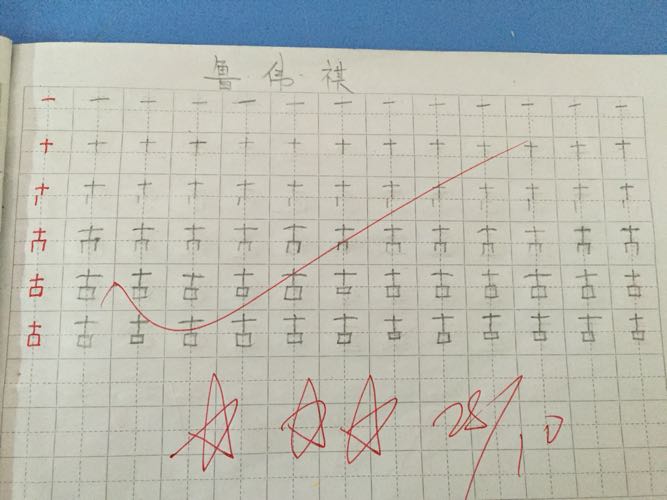 鲁伟祺
一 一 一 一 一 一 一 一 一 一 一 一 一
十 十 十 十 十 十 十 十 十 十 十 十 十
古 古 古 古 古 古 古 古 古 古 古 古 古
古 古 古 古 古 古 古 古 古 古 古 古 古
28/10